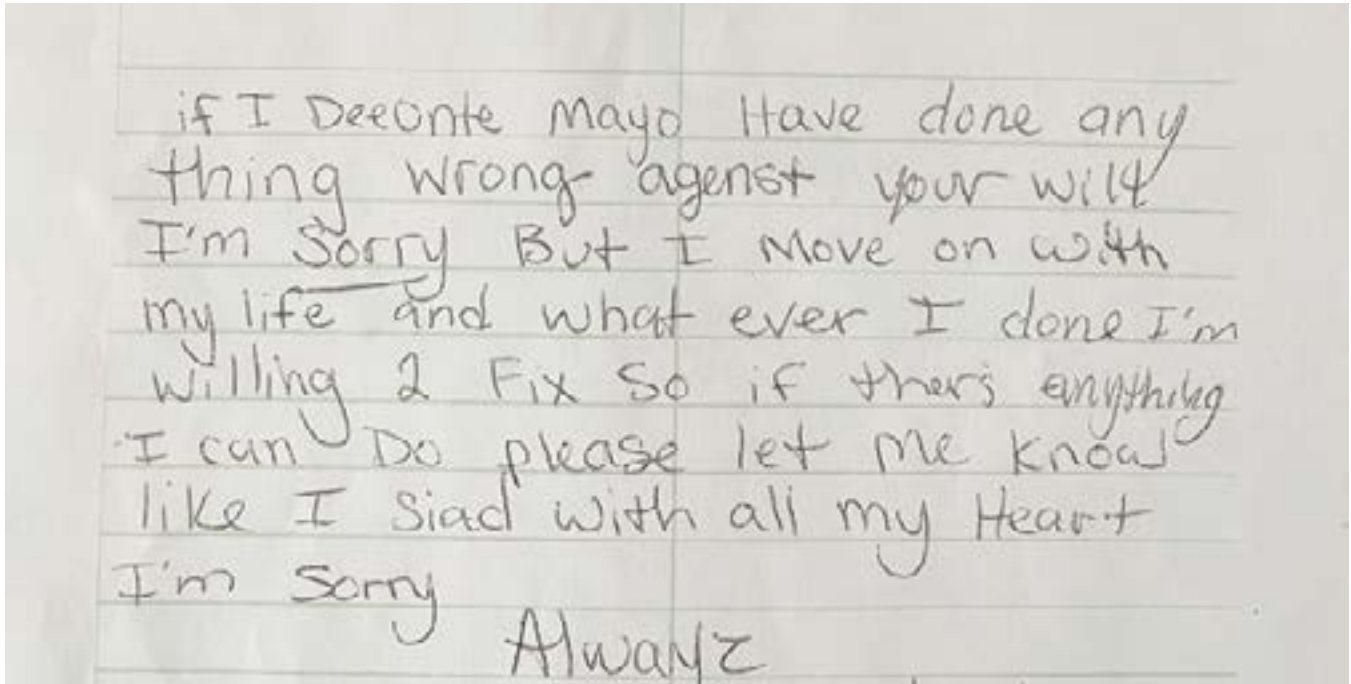 if I Deeonte Mayo Have done any
thing wrong agenst your will
I'm Sorry But I Move on with
my life and what ever I done I'm
willing 2 Fix So if ther's anything
I can Do please let me know
like I Siad with all my Heart
I'm Sorry
Alwayz